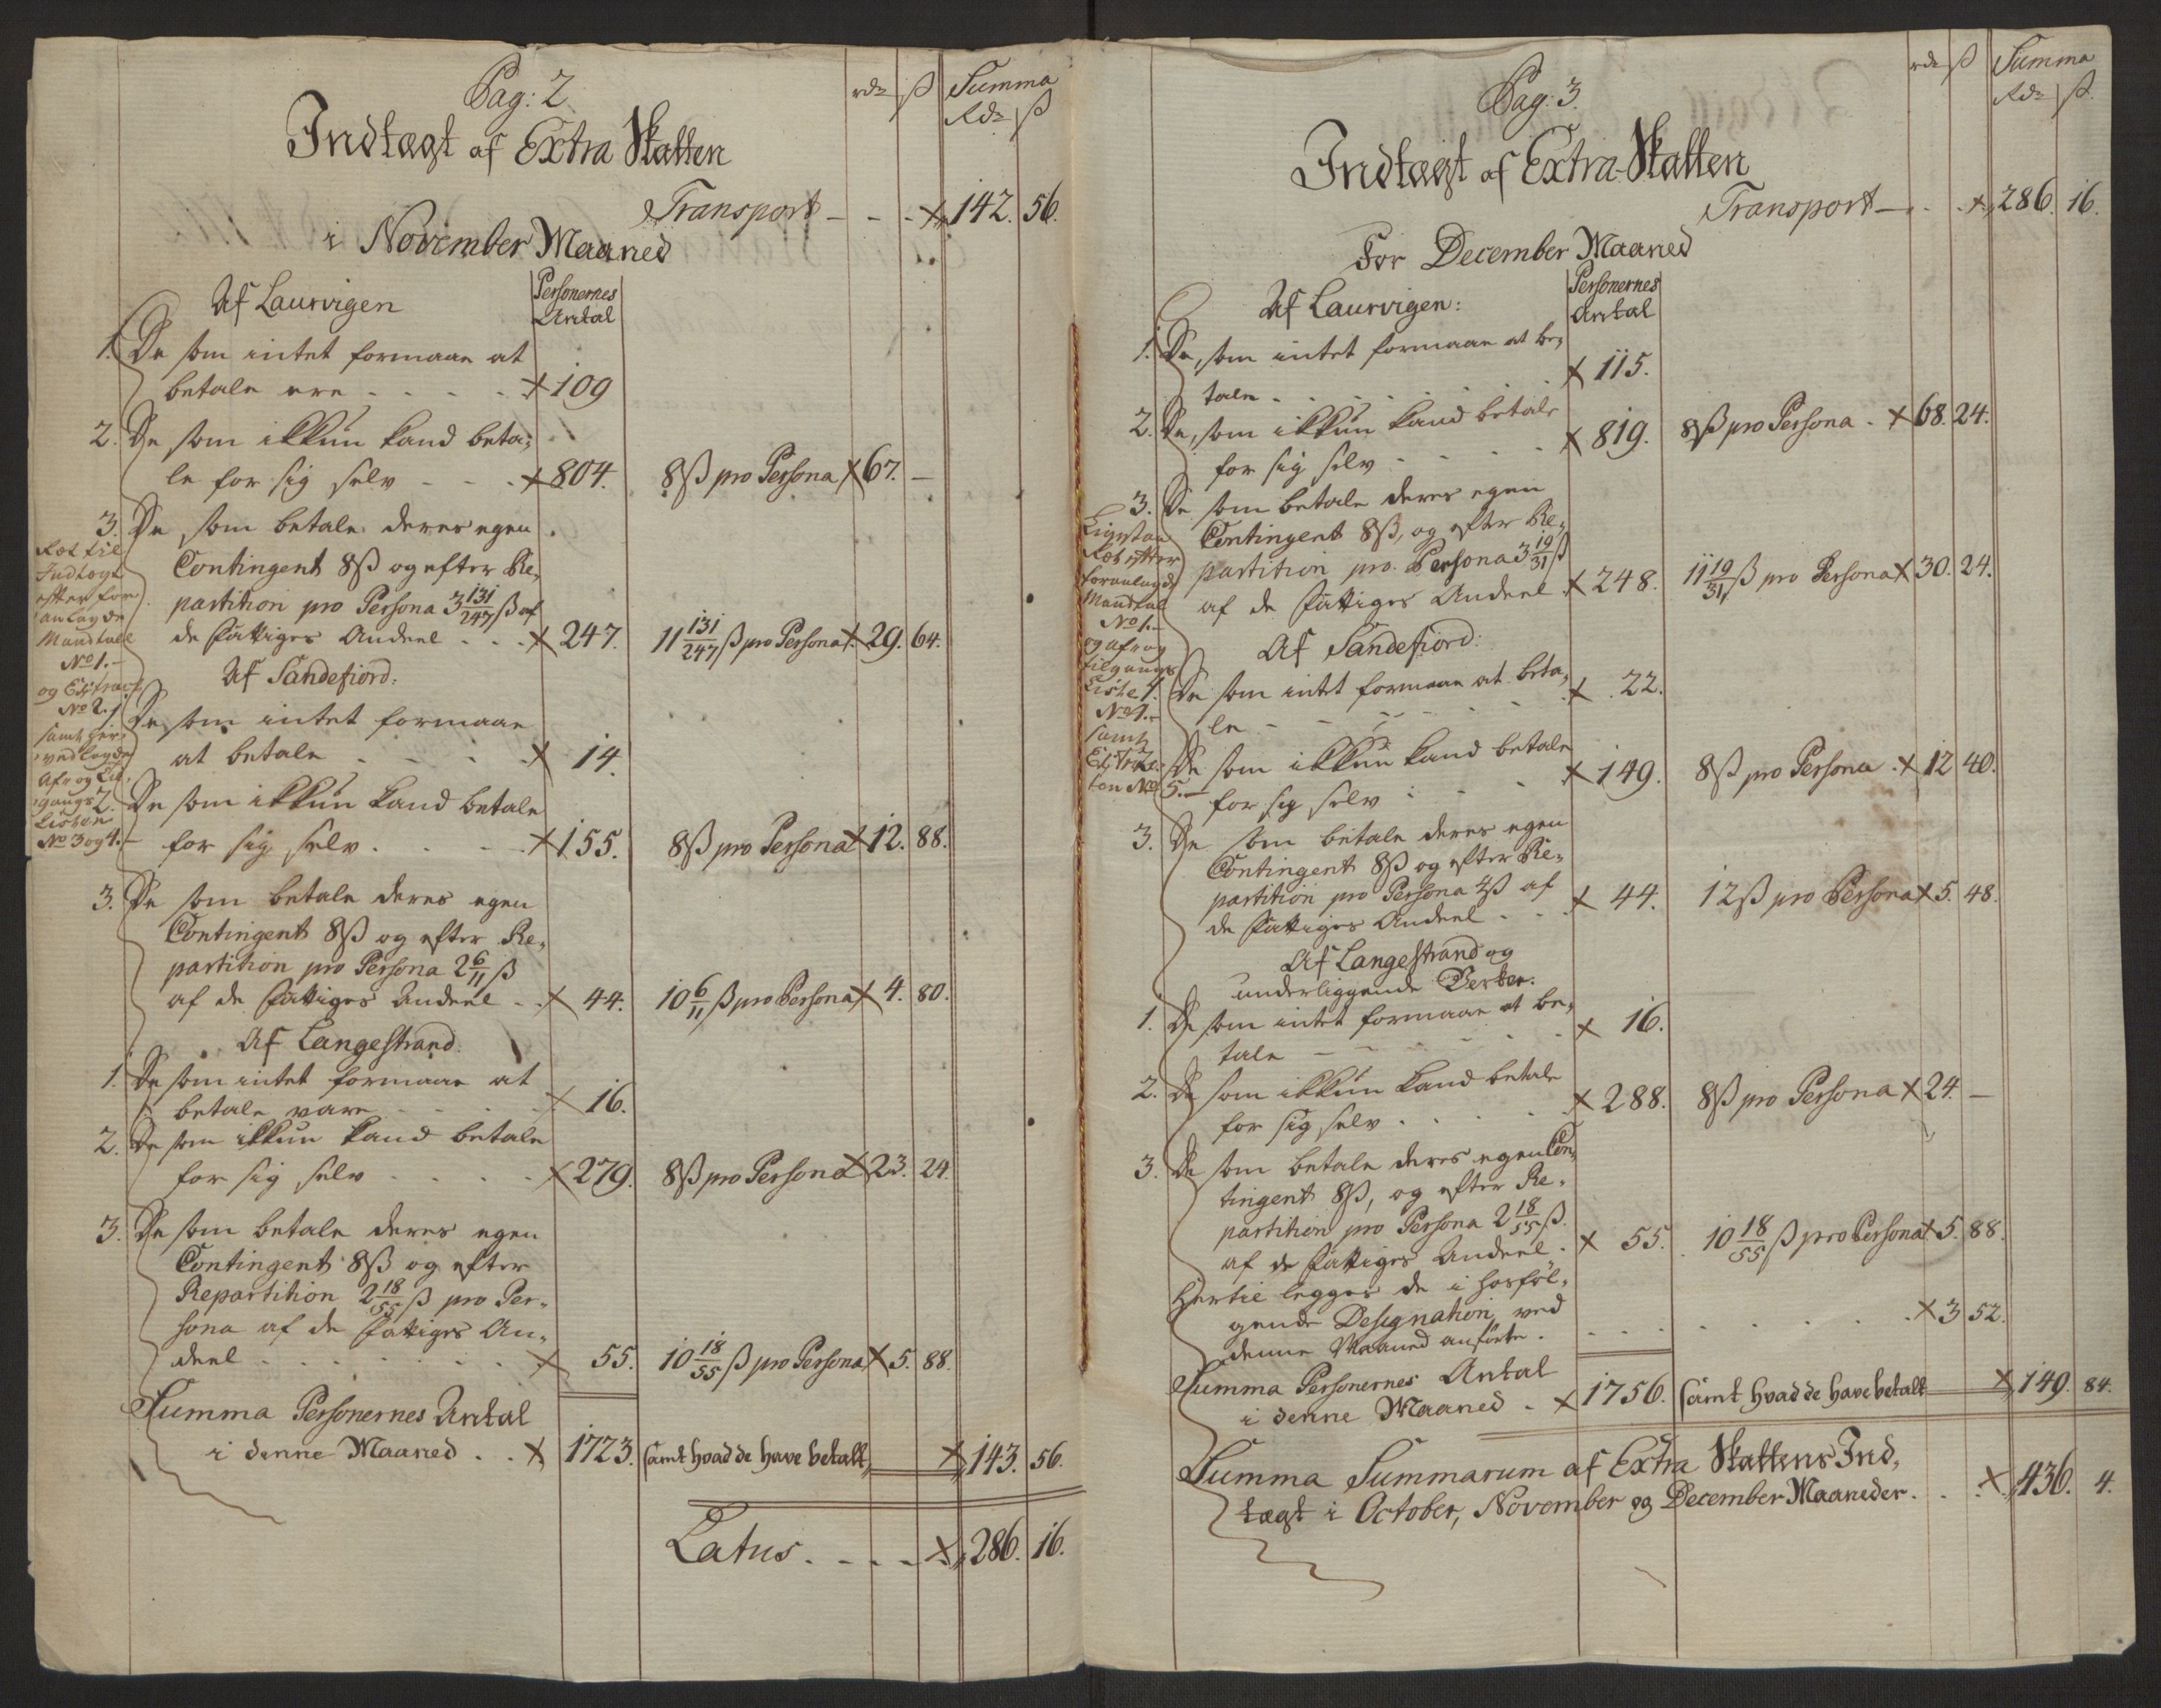 Pag: 2
rdr ß Summa
Rdr ß
Indtægt af Extra Skatten
Transport - - - 142. 56.
i November Maaned
Af Laurvigen
Personernes
Antal
1. De som intet formaae at
betale ere - - - 109
2. De som ikkun kand beta-
le for sig selv - - - 804. 8 ß pro Persona 67. -
3. De som betale deres egen
Contingent 8 ß og efter Re-
partition pro Persona 3 131/247 ß af
de fattiges Andeel - - 247. 11 131/247 ß pro Persona 29. 64.
Indtægt
efter for
anlagde
Mandtall
No 1. -
og Extract
No 2.
samt her-
ved lagde
Af- og Til-
gangs
Listen
No 3 og 4. -
Af Sandefiord:
1. De som intet formaae
at betale - - - 14.
2. De som ikkun kand betale
for sig selv - - - 155. 8 ß pro Persona 12. 88.
3. De som betale deres egen
Contingent 8 ß og efter Re-
partition pro Persona 2 6/11 ß
af de fattiges Andeel - - 44. 10 6/11 ß pro Persona 4. 80.
Af Langestrand.
1. De som intet formaae at
betale vare - - - 16.
2. De som ikkun kand betale
for sig selv - - - 279. 8 ß pro Persona 23. 24.
3. De som betale deres egen
Contingent 8 ß og efter
Repartition 2 18/55 ß pro Per-
sona af de fattiges An-
deel - - - 55. 10 18/55 ß pro Persona 5. 88.
Summa Personernes Antal
i denne Maaned - - 1723. samt hvad de have betalt 143. 56.
Latus - - - - 286. 16.
Pag: 3.
rdr ß Summa
Rdr ß.
Indtægt af Extra-Skatten
Transport - - - 286. 16.
For December Maaned
Af Laurvigen:
Personernes
Antal
1. De, som intet formaae at be-
tale - - - 115.
2. De, som ikkun kand betale
for sig selv - - - 819. 8 ß pro Persona - 68. 24.
3. De som betale deres egen
Contingent 8 ß, og efter Re-
partition pro Persona 3 19/31 ß
af de fattiges Andeel - 248. 11 19/31 ß pro Persona 30. 24.
efter
foranlagde
Mandtal
No 1. -
og Af- og
tilgangs
Liste
samt
Af Sandefiord:
1. De som intet formaae at beta-
le - - - 22.
2. De som ikkun kand betale
for sig selv - - - 149. 8 ß pro Persona - 12 40.
3. De som betale deres egen
Contingent 8 ß og efter Re-
partition pro Persona 4 ß af
de fattiges Andeel - - 44. 12 ß pro Persona 5. 48.
Af Langestrand og
underliggende Verker.
1. De som intet formaae at be-
tale - - - 16.
2. De som ikkun kand betale
for sig selv - - - 288. 8 ß pro Persona 24. -
3. De som betale deres egen Con-
tingent 8 ß, og efter Re-
partition pro Persona 2 18/55 ß.
af de fattiges Andeel - 55. 10 18/55 ß pro Persona 5. 88.
Hertil legges de i hosføl-
gende Designation ved
denne Maaned anførte - - - 3 52.
Summa Personernes Antal
i denne Maaned - 1756. samt hvad de have betalt 149. 84.
Summa Summarum af Extra Skattens Ind-
tægt i October, November og December Maaneder - - 436. 4.